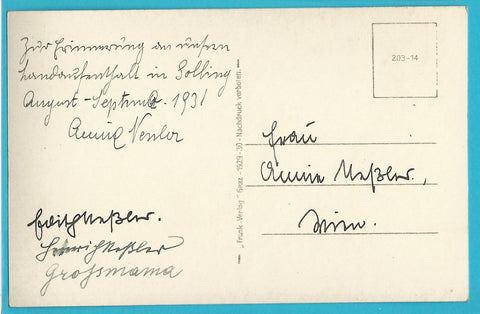 Zur Erinnerung an unsern
Landaufenthalt in Solling
August - Septemb. 1931
Annie Nessler
Edith Neßler.
Heinrich Neßler
Grossmama
„Frank-Verlag“ Graz - 1929-30 - Nachdruck verboten.
203-14
Frau
Annie Neßler,
Wien.